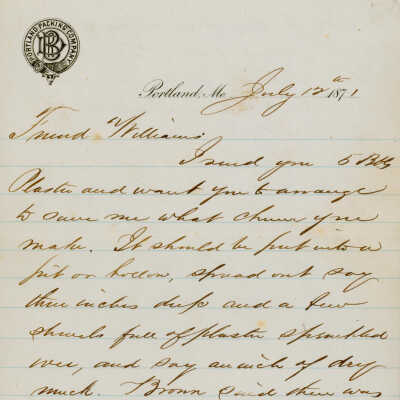 PORTLAND PACKING COMPANY
Portland, Me July 12th 1871
Friend Williams
I send you 5 Bbls
Plaster and want you to arrange
to save me what you
make. It should be put into a
pit or hollow, spread out say
three inches deep and a few
shovels full of plaster sprinkled
over, and say an inch of dry
muck. Brown said there was